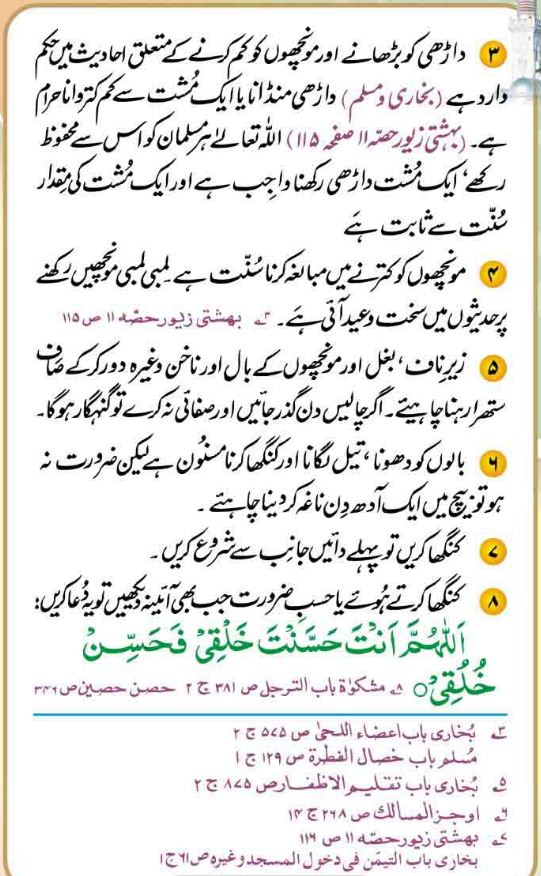 ۳ داڑھی کو بڑھانے اور مونچھوں کو کم کرنے کے متعلق احادیث میں حکم
وارد ہے (بخاری و مسلم) داڑھی منڈانا یا ایک مُشت سے کم کتروانا حرام
ہے۔ (بہشتی زیور حصّہ ۱۱ صفحہ ۱۱۵) اللہ تعالےٰ ہر مسلمان کو اس سے محفوظ
رکھے، ایک مُشت داڑھی رکھنا واجب ہے اور ایک مُشت کی مقدار
سُنّت سے ثابت ہے
۴ مونچھوں کو کترنے میں مبالغہ کرنا سُنّت ہے لمبی لمبی مونچھیں رکھنے
پر حدیثوں میں سخت وعید آئی ہے۔ ۳ بہشتی زیور حصّہ ۱۱ ص ۱۱۵
۵ زیرِ ناف، بغل اور مونچھوں کے بال اور ناخن وغیرہ دور کر کے صاف
ستھرا رہنا چاہیئے۔ اگر چالیس دن گذر جائیں اور صفائی نہ کرے تو گنہگار ہوگا۔
۶ بالوں کو دھونا، تیل لگانا اور کنگھا کرنا مسنُون ہے لیکن ضرورت نہ
ہو تو بیچ میں ایک آدھ دِن ناغہ کر دینا چاہئے۔
۷ کنگھا کریں تو پہلے دائیں جانب سے شروع کریں۔
۸ کنگھا کرتے ہُوئے یا حسبِ ضرورت جب بھی آئینہ دیکھیں تو یہ دُعا کریں:
اَللّٰهُمَّ اَنْتَ حَسَّنْتَ خَلْقِیْ فَحَسِّنْ
خُلُقِیْ ۸ مشکوٰة باب الترجل ص ۳۸۱ ج ۲ حصن حصین ص ۳۴۶
۳ بُخاری باب اعضاء اللحیٰ ص ۵۷۵ ج ۲
مُسلم باب خصال الفطرة ص ۱۲۹ ج ۱
۵ بُخاری باب تقلیم الاظفار ص ۸۷۵ ج ۲
۶ اوجز المسالک ص ۲۶۸ ج ۱۴
۷ بهشتی زیور حصّه ۱۱ ص ۱۱۶
بخاری باب التیمّن فی دخول المسجد وغیره ص ۶۱ ج ۱